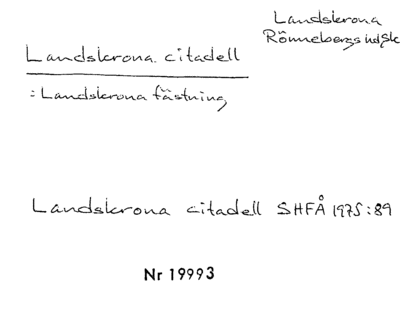 Landskrona
Rönnebergs hd, Sk
Landskrona citadell
= Landskrona fästning
Landskrona citadell SHFÅ 1975:89
Nr 19993